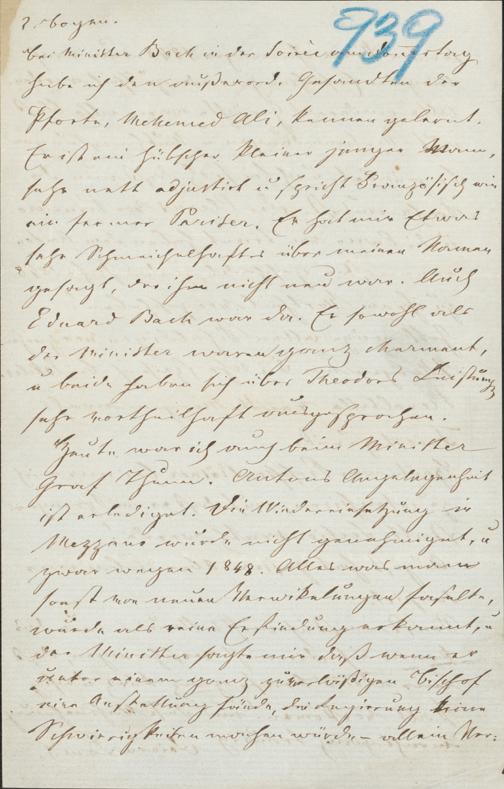 2. Bogen.
939
bei Minister Bach in der Soirée am Donnerstag
habe ich den außerord. Gesandten der
Pforte, Mehemed Ali, kennen gelernt.
Er ist ein hübscher kleiner junger Mann,
sehr nett adjustirt u spricht Französisch wie
ein Pariser. Er hat mir Etwas
sehr Schmeichelhaftes über meinen Namen
gesagt, der ihm nicht neu war. Auch
Eduard Bach war da. Er sowohl als
der Minister waren ganz charmant,
u beide haben sich über Theodors Leistung
sehr vortheilhaft ausgesprochen.
Heute war ich auch beim Minister
Graf Thun. Antons Angelegenheit
ist erledigt. Die Wiedereinsetzung in
wurde nicht genehmigt, u
zwar wegen 1848. Alles was man
sonst von neuen Verwikelungen faselte,
wurde als reine Erfindung erkannt, u
der Minister sagte mir daß wenn er
unter einem ganz zuverläßigen Bischof
eine Anstellung fände, die Regierung keine
Schwierigkeiten machen würde – allein Ver: